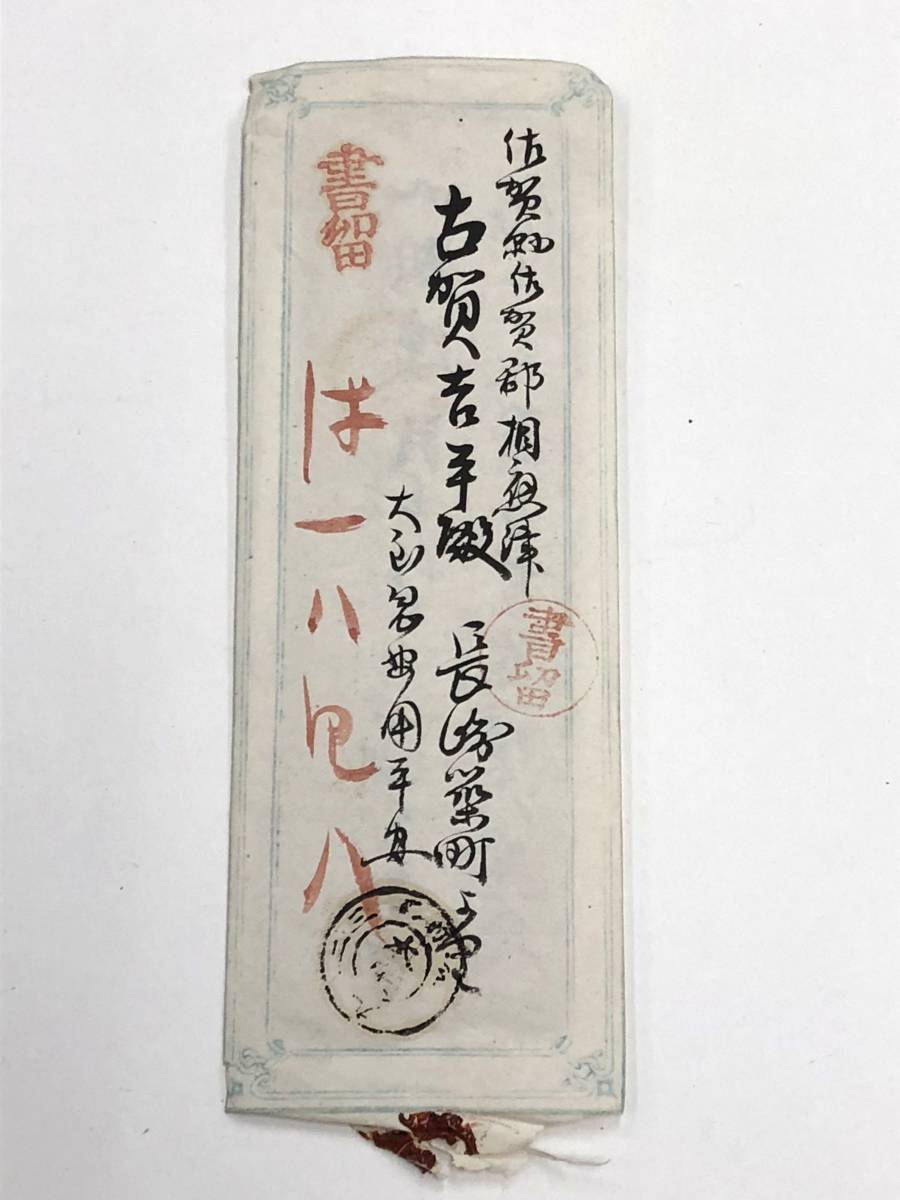 佐賀縣佐賀郡相應津
古賀吉平殿
書留
長崎築町
大至急要用平安
書留
は一八
八